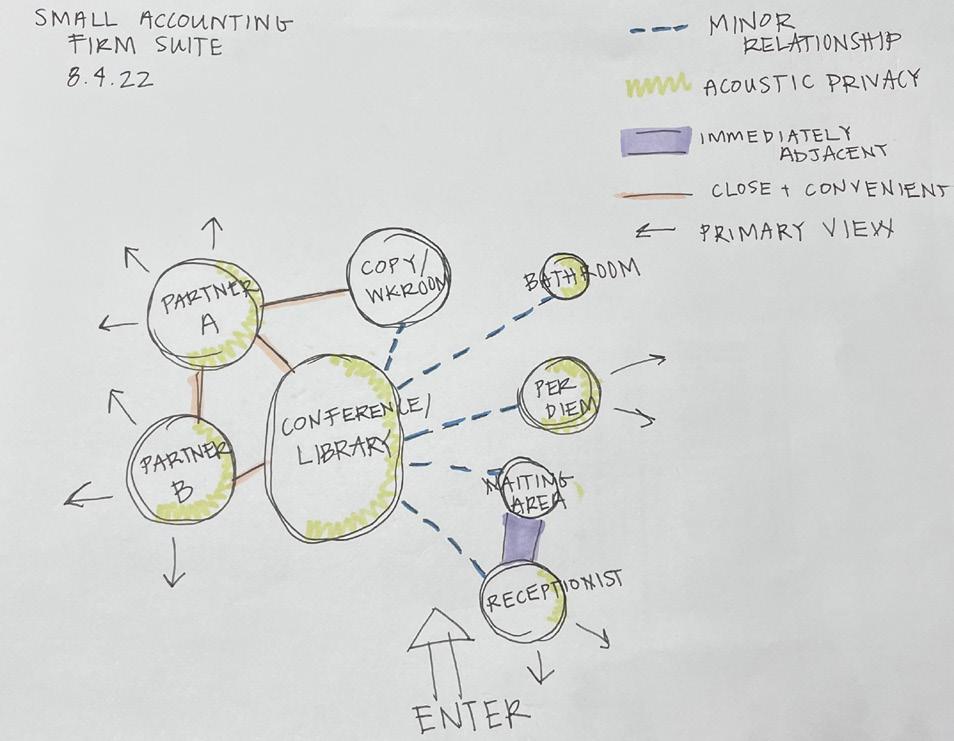 SMALL ACCOUNTING
FIRM SUITE
8.4.22
MINOR
RELATIONSHIP
ACOUSTIC PRIVACY
IMMEDIATELY
ADJACENT
CLOSE + CONVENIENT
PRIMARY VIEW
PARTNER
A
COPY/
WKROOM
BATHROOM
CONFERENCE/
LIBRARY
PER
DIEM
PARTNER
B
WAITING
AREA
RECEPTIONIST
ENTER